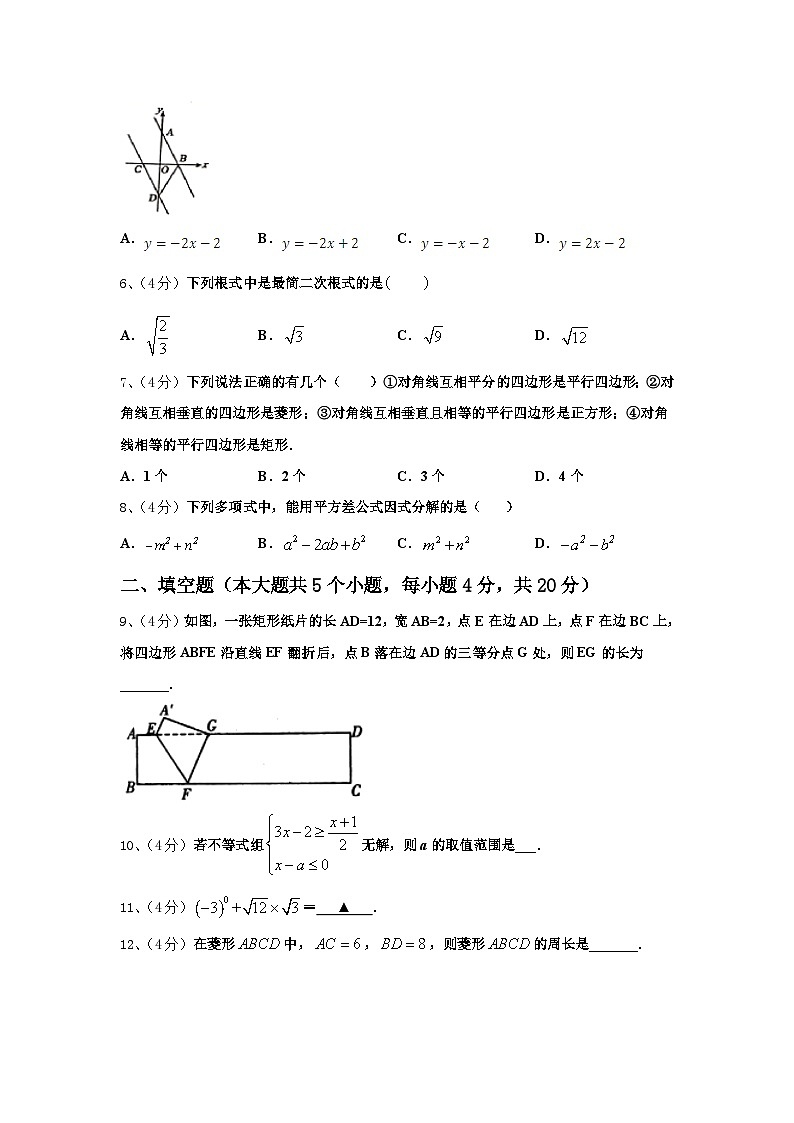 y
A
C O B x
D
A．y＝−2x−2 B．y＝−2x+2 C．y＝−x−2 D．y＝2x−2
6、（4分）下列根式中是最简二次根式的是( )
A．√(2/3) B．√3 C．√9 D．√12
7、（4分）下列说法正确的有几个（ ）①对角线互相平分的四边形是平行四边形；②对
角线互相垂直的四边形是菱形；③对角线互相垂直且相等的平行四边形是正方形；④对角
线相等的平行四边形是矩形．
A．1个 B．2个 C．3个 D．4个
8、（4分）下列多项式中，能用平方差公式因式分解的是（ ）
A．−m²+n² B．a²−2ab+b² C．m²+n² D．−a²−b²
二、填空题（本大题共5个小题，每小题4分，共20分）
9、（4分）如图，一张矩形纸片的长AD=12，宽AB=2，点E在边AD上，点F在边BC上，
将四边形ABFE沿直线EF翻折后，点B落在边AD的三等分点G处，则EG的长为
_______．
A'
A E G D
B F C
10、（4分）若不等式组{3x−2≥(x+1)/2 x−a≤0 无解，则a的取值范围是___．
11、（4分）(−3)⁰+√12×√3＝___▲____．
12、（4分）在菱形ABCD中，AC＝6，BD＝8，则菱形ABCD的周长是_______．